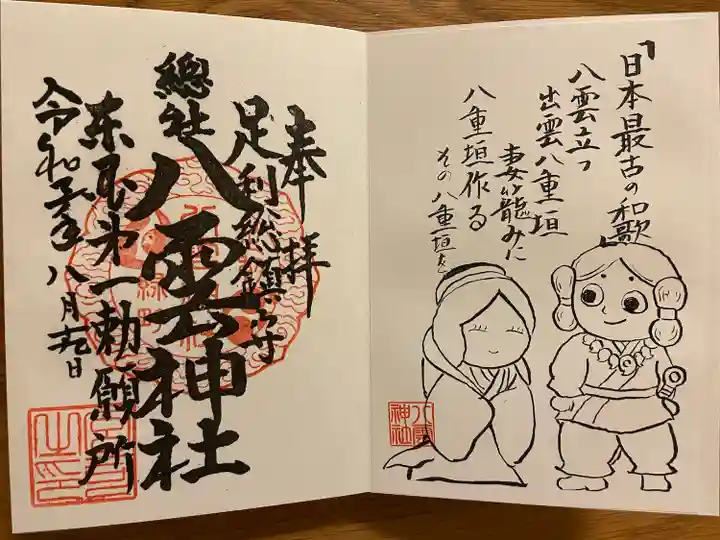 「日本最古の和歌」
八雲立つ
出雲八重垣
妻 籠みに
八重垣作る
その八重垣を
八雲神社
奉拝
足利総鎮守
總社
八雲神社
緑町
第一勅願所
令和 年八月 日